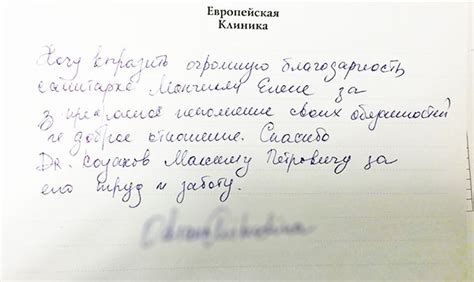 Европейская
Клиника
Хочу выразить огромную благодарность
санитарке Елене за
прекрасное исполнение своих обязанностей
доброе отношение. Спасибо
Dr. Максиму Петровичу за
его труд и заботу.